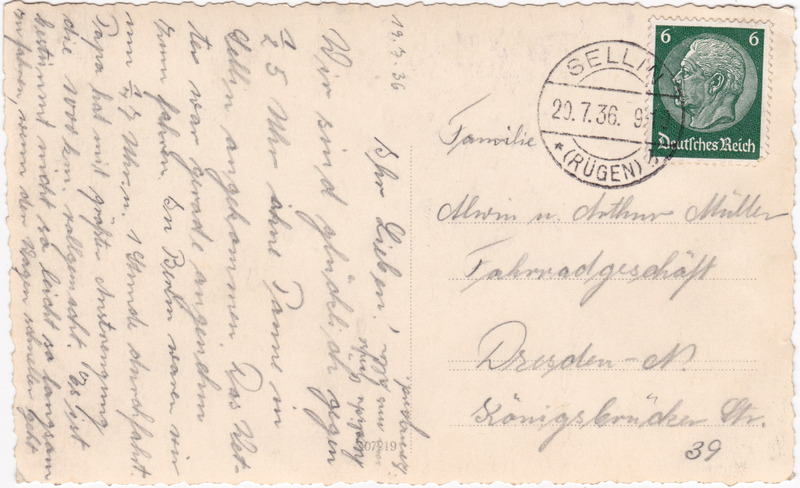 19.7.36
Ihr Lieben!
Wir sind glücklich gegen
2 5 Uhr ohne Panne in
Sellin angekommen. Das Wet-
ter war gerade angenehm
zum fahren. In Berlin waren wir
um 1/4 7 Uhr u. 1 Stunde durchfahrt.
Papa hat mit größter Anstrengung
die 1000 km. vollgemacht. Es ist
bestimmt nicht so leicht so langsam
zu fahren, wenn der Wagen schneller geht
07219
SELLIN
20.7.36. 9
* (RÜGEN)
6 6
Deutsches Reich
Familie
Alwin u. Arthur Müller
Fahrradgeschäft
Dresden-N.
Königsbrücker Str.
39